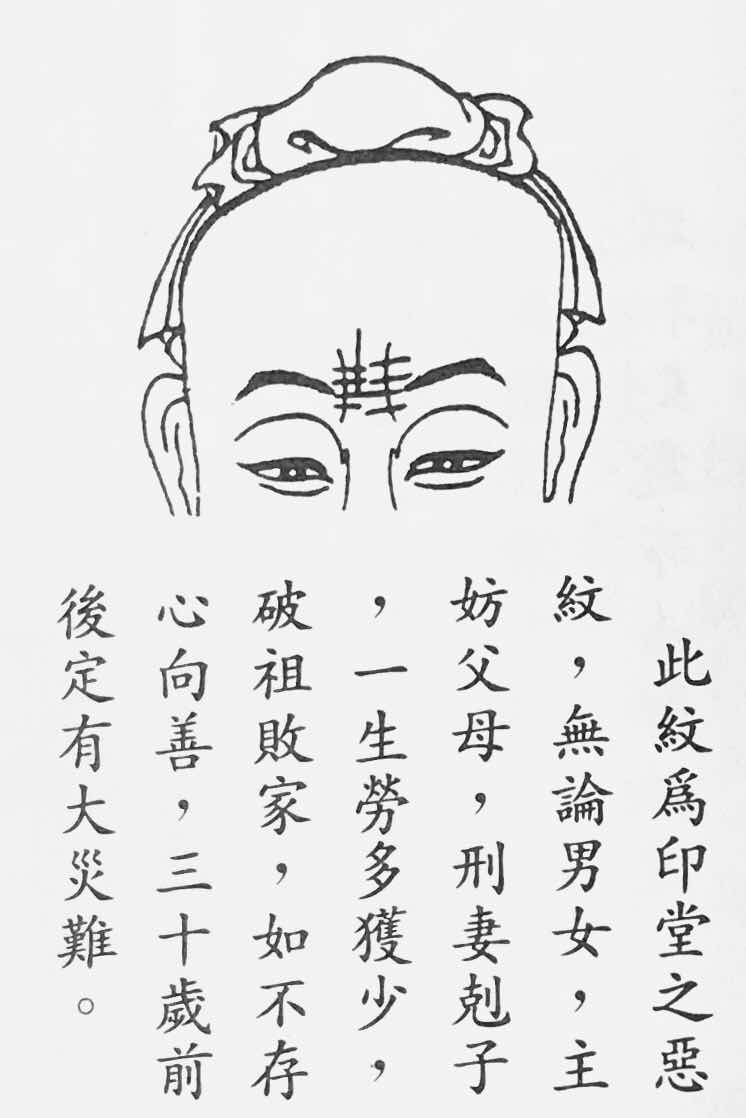 此紋爲印堂之惡
紋，無論男女，主
妨父母，刑妻剋子
，一生勞多獲少，
破祖敗家，如不存
心向善，三十歲前
後定有大災難。